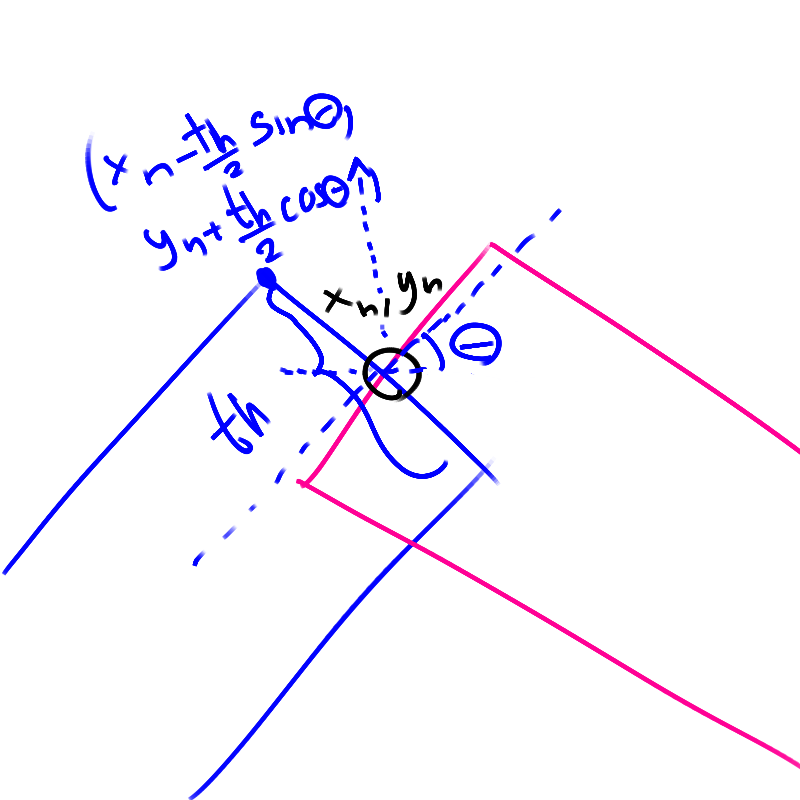 (xn - th/2 sinθ,
yn + th/2 cosθ)
xn, yn
θ
th